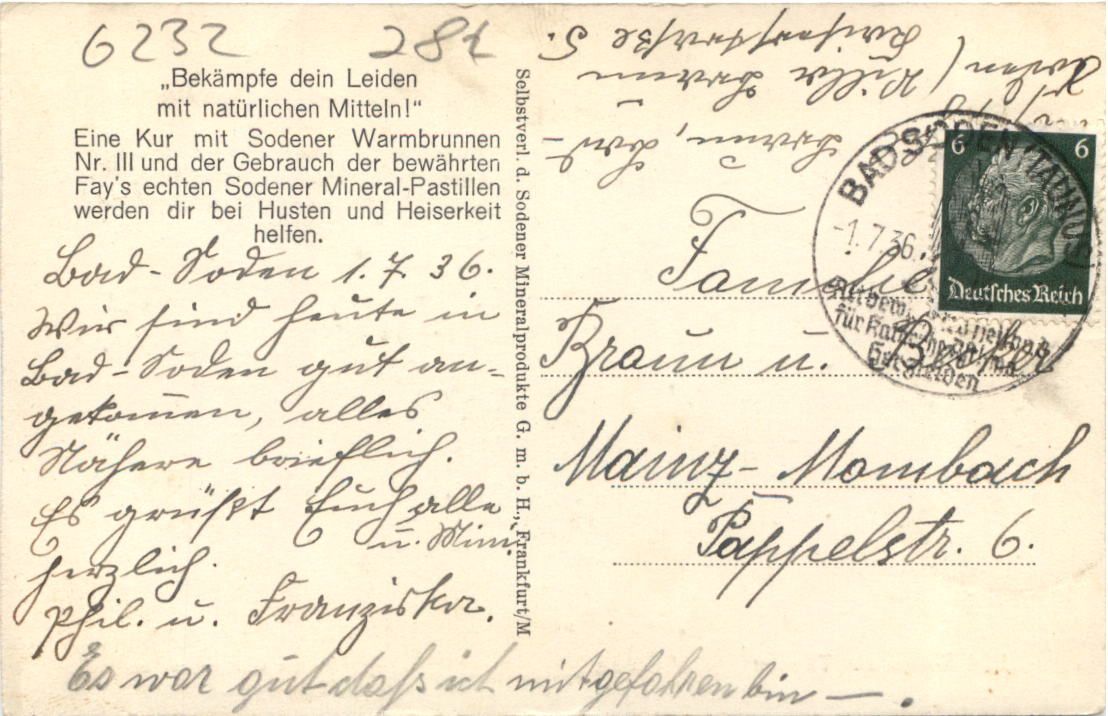 6232 281
„Bekämpfe dein Leiden
mit natürlichen Mitteln!“
Eine Kur mit Sodener Warmbrunnen
Nr. III und der Gebrauch der bewährten
Fay's echten Sodener Mineral-Pastillen
werden dir bei Husten und Heiserkeit
helfen.
Bad-Soden 1.7.36.
Wir sind heute in
Bad-Soden gut an-
gekom̅en, alles
Nähere brieflich.
Es grüßt Euch alle
u. Mimi
herzlich.
Phil. u. Franziska.
Es war gut daß ich mitgefahren bin —.
Selbstverl. d. Sodener Mineralprodukte G. m. b. H., Frankfurt/M
Braun, Bad-
Soden (Villa Braun
straße 5.
BAD SODEN (TAUNUS)
-1.7.36.
für Katarrhe
Herzleiden
6 6
Deutsches Reich
Familie
Braun u.
Mainz-Mombach
Pappelstr. 6.